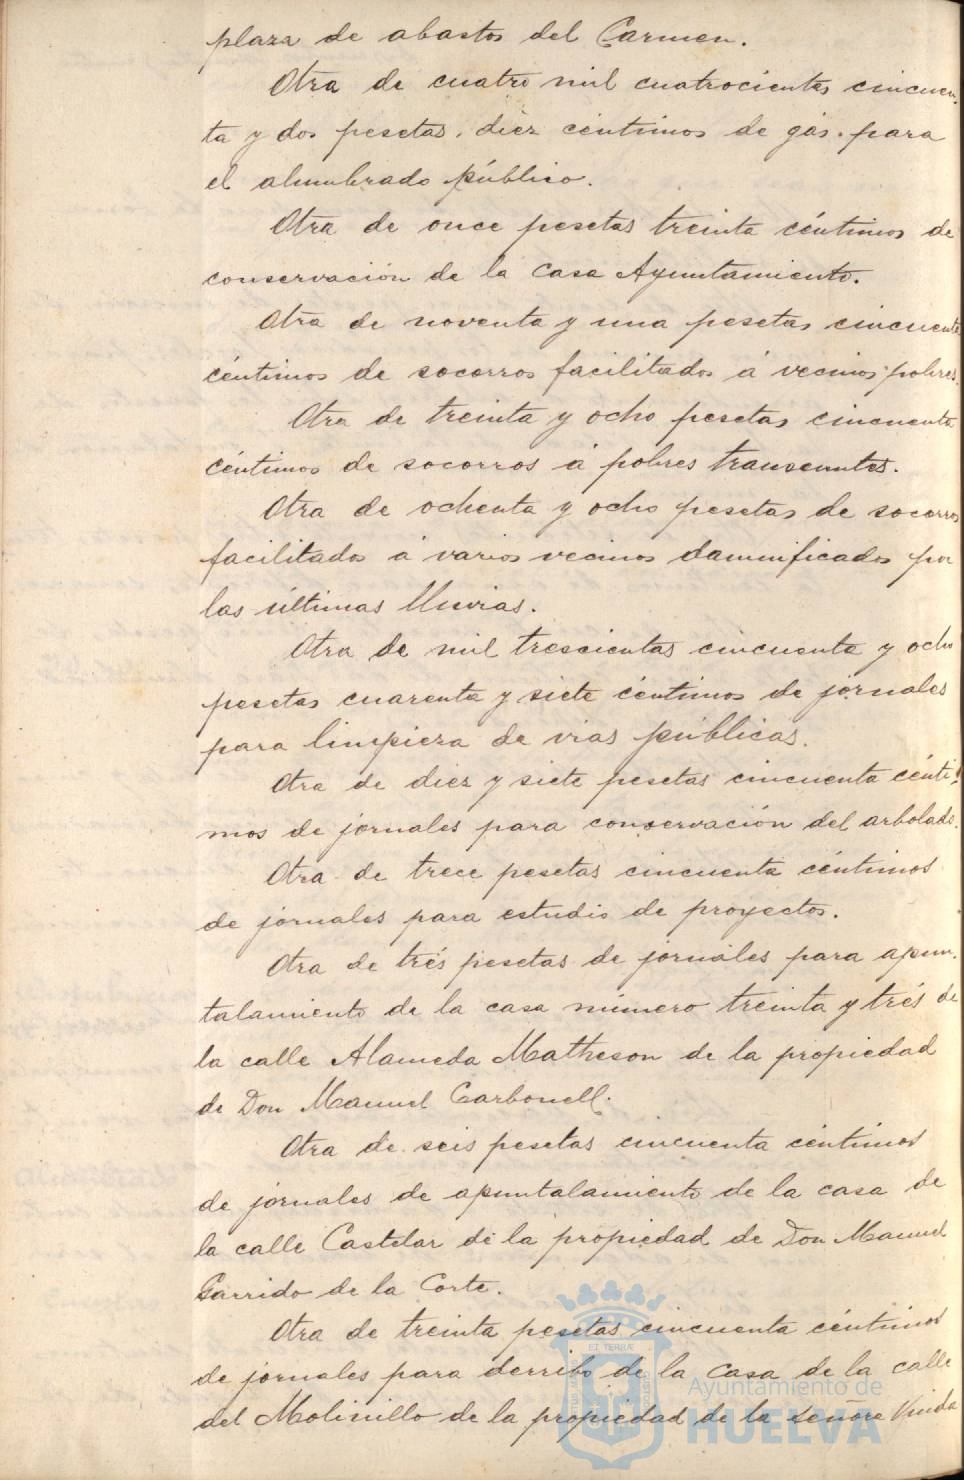 plaza de abastos del Carmen.
Otra de cuatro mil cuatrocientas cincuen-
ta y dos pesetas, diez céntimos de gás para
el alumbrado público.
Otra de once pesetas treinta céntimos de
conservación de la Casa Ayuntamiento.
Otra de noventa y una pesetas cincuenta
céntimos de socorros facilitados á vecinos pobres.
Otra de treinta y ocho pesetas cincuenta
céntimos de socorros á pobres transeuntes.
Otra de ochenta y ocho pesetas de socorros
facilitados á varios vecinos damnificados por
las últimas lluvias.
Otra de mil trescientas cincuenta y ocho
pesetas cuarenta y siete céntimos de jornales
para limpieza de vias públicas.
Otra de diez y siete pesetas cincuenta cénti-
mos de jornales para conservación del arbolado.
Otra de trece pesetas cincuenta céntimos
de jornales para estudio de proyectos.
Otra de trés pesetas de jornales para apun-
talamiento de la casa número treinta y trés de
la calle Alameda Matheson de la propiedad
de Don Manuel Carbonell.
Otra de seis pesetas cincuenta céntimos
de jornales de apuntalamiento de la casa de
la calle Castelar de la propiedad de Don Manuel
Garrido de la Corte.
Otra de treinta pesetas cincuenta céntimos
de jornales para derribo de la Casa de la calle
del Molinillo de la propiedad de la Señora Viuda
Ayuntamiento de
HUELVA